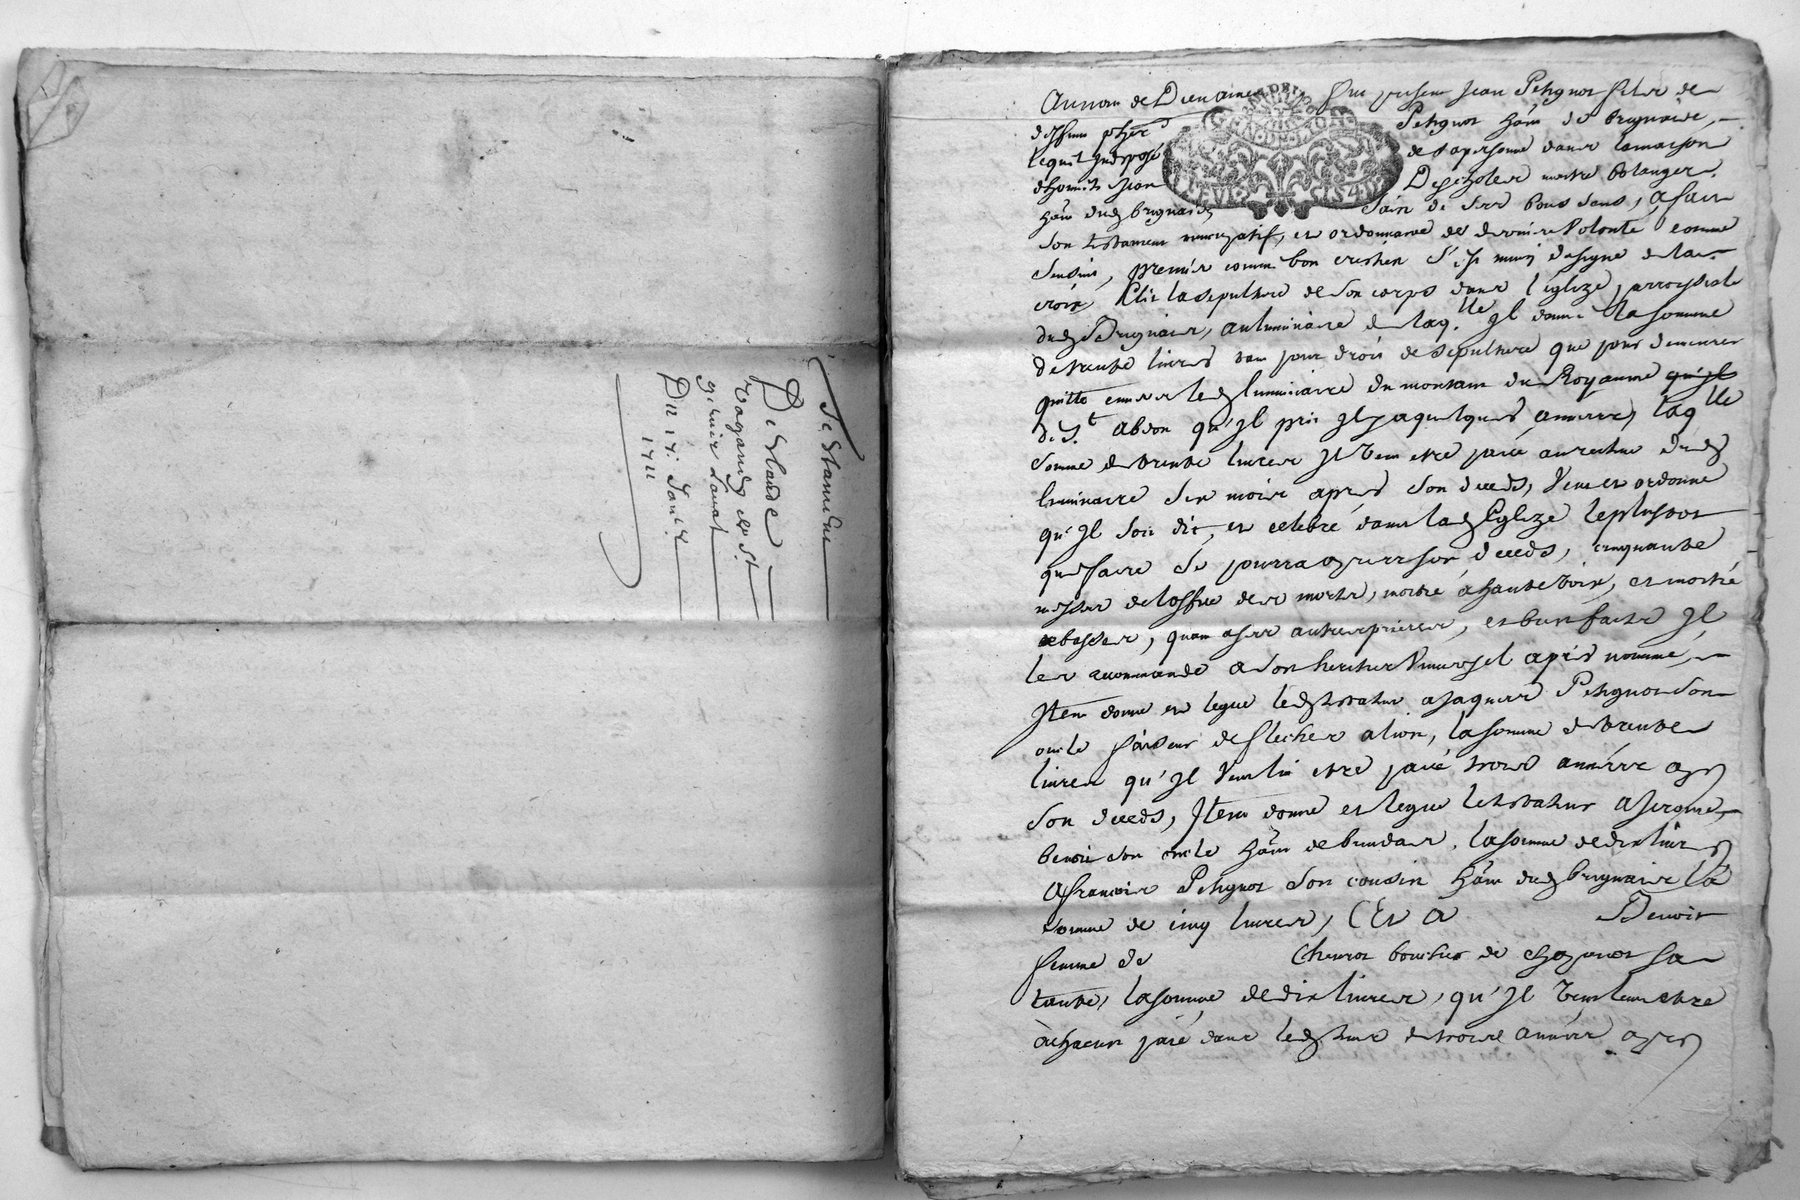 Testament
De Claude
Du 17e Janr
1711
Au nom de Dieu amen fut present Jean Petignot fils de
deffunt Petignot hãn de brignais,
lequel Indisposé de sa personne dans la maison
d'honnete Jean maitre bolanger
hãn dud brignais sain de ses bons sens, a fait
son testament nuncupatif, et ordonnance de derniere Volonté comme
sensuit, premier comme bon crestien s'est muny du signe de la
croix Elit la sepulture de son corps dans l'eglize parroissiale
dud Brignais, au luminaire de laqlle Il donne la somme
de trente livres tant pour droit de sepulture que pour demeurer
quitte envers led luminaire du montant du Royaume qu'il
de St abdon qu'Il prit Il y a quelques années, laqlle
somme de trente livres Il veut etre paié au recteur dud
luminaire six mois apres son deceds, Veut et ordonne
qu'Il soit dit, et celebré dans lad Eglize le plustot
que faire se pourra apres son deceds, cinquante
messes de loffice des morts, moitié a haute voix, et moitié
a basses, quant a ses autres prieres, et bienfaits Il
les recommande a son heritier Universel apres nommé,
Item donne et legue led testateur a Jaques Petignot son
oncle faiseur de fleches a lion, la somme de trente
livres qu'Il veut luy etre paié trois années apres
son deceds, Item donne et legue le testateur a Jerosme
benoit son oncle hãn de brindas, la somme de dix livres
A francois Petignot son cousin hãn dud brignais la
somme de cinq livres, Et a Benoit
femme de Chenot boucher de chaponost sa
tante, la somme de dix livres, qu'Il veut leur etre
a chacun paié dans led terme de trois années apres